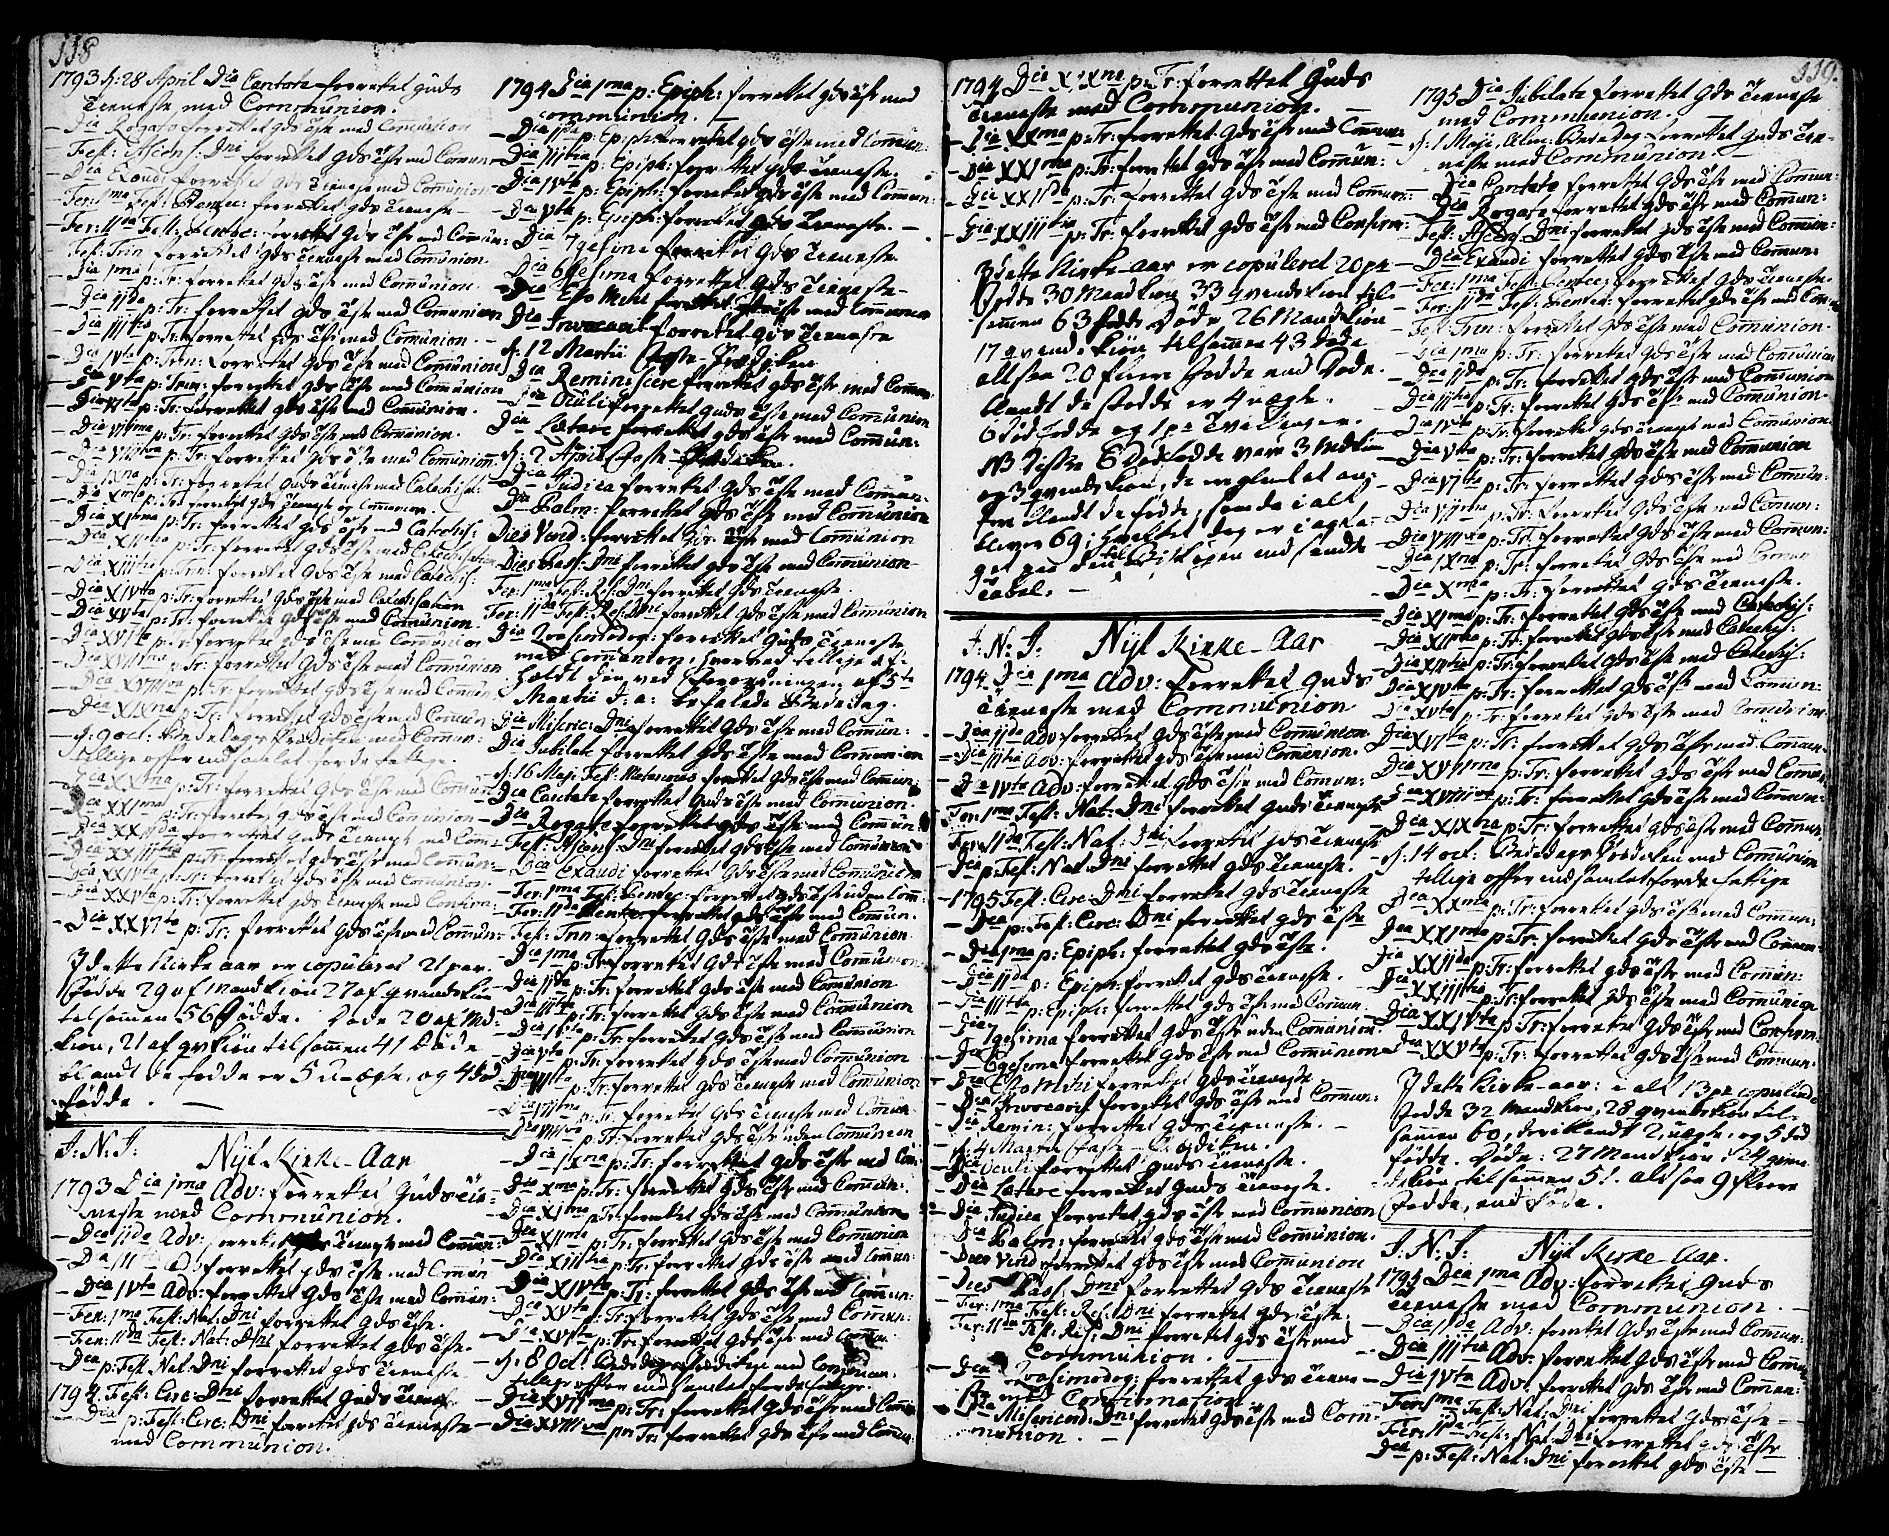 118
1793 d: 28 April Dca Cantate forrettet Guds
Tieneste med Communion.
- Dca Rogate forrettet Gds Tste med Communion
- Fest: Ascens: Dni forrettet Gds Tste med Comun
- Dca Exaudi forrettet Gds Tieneste med Comunion
- Fer: 1ma Fest: Pentec: forrettet Gds Tieneste -
- Fer: 11da Fest: Pentec: forrettet Gds Tste med Comun:
Fest: Trin forrettet Gds Tieneste med Comunion.
- Dca 1ma p: Tr: forrettet Gds Tste med Communion.
- Dca 11da p: Tr: forrettet Gds Tste med Comunion
- Dca 111tia p: Tr: forrettet Gds Tste med Communion.
- Dca 1Vta p: Trin: forrettet Gds Tste med Communion
- Dca Vta p: Trin: forrettet Gds Tste med Communion
- Dca V1ta p: Tr: forrettet Gds Tste med Communion.
- Dca V11ma p: Tr: forrettet Gds Tste med Comunion.
- Dca V111va p: Tr: forrettet Gds Tste med Comunion.
- Dca 1Xna p: Tr: forrettet Guds Tieneste med Catechisat:
- Dca Xma p: Tr: forrettet Gds Tieneste og Comunion.
- Dca X1ma p: Tr: forrettet Gds Tste med Catechis:
- Dca X11ma p: Tr: forrettet Gds Tste med Catechisation
- Dca X111tia p: Trin: forrettet Gds Tste med Catechis:
- Dca X1Vta p: Tr: forrettet Gds Tste med Catechisation
- Dca XVta p: Tr: forrettet Gds Tste med Communion.
- Dca XV1ta p: Tr: forrettet Gds Tste med Comunion
- Dca XV11ma p: Tr: forrettet Gds Tste med Communion
- Dca XV111va p: Tr: forrettet Gds Tste med Comun:
- Dca X1Xna p: Tr: forrettet Gds Tste med Comun:
- d: 9 Oct: Bededags Prædiken med Commun:
tillige offer indsamlet for de fattige.
- Dca XXma p: Tr: forrettet Gds Tste med Comun
- Dca XX1ma p: Tr: forrettet Gds Tste med Comunion -
- Dca XX11da forrettet Guds Tieneste med Com:
- Dca XX111tia p: Tr: forrettet Gds Tste med Comun:
- Dca XX1Vta p: Tr: forrettet Gds Tste med Comunion.
- Dca XXVta p: Tr: forrettet Gds Tieneste med Confirm:
- Dca XXV1ta p: Tr: forrettet Gds Tste med Commun:
I dette Kirke aar er copuleret 21 par.
Fødde 29 af Mandkiøn 27 af qvindekiøn
tilsammen 56 Fødde. Døde 20 af Md-
kiøn, 21 af qvkiøn tilsammen 41 døde
blandt de fødde er 5 u-ægte, og 4 død
fødde. -
J: N: J: Nyt Kirke-Aar
1793 Dca 1ma Adv: forrettet Guds Tie-
neste med Communion.
- Dca 11da Adv: forrettet Gds Tieneste med Comun:
- Dca 111tia Ad: forrettet Gds Tste med Comun
- Dca 1Vta Adv: forrettet Gds Tste med Commun:
- Fer: 1ma Fest: Nat: Dni forrettet Gds Tste.
- Fer: 11da Fest: Nat: Dni forrettet Gds Tste.
- Dca p: Fest: Nat: Dni forrettet Gds Tieneste
1794 Fest: Circ: Dni forrettet Guds Tieneste
- Dca p: Fest: Circ: Dni forrettet Gds Tieneste
med Communion.
1794 Dca 1ma p: Epiph: forrettet Gds Tste med
communion. -
- Dca 11da p: Epiph: forrettet Gds Tste med Commun:
- Dca 111tia p: Epiph: forrettet Gds Tieneste.
- Dca 1Vta p: Epiph: forrettet Gds Tste med Commun:
- Dca Vta p: Epiph: forrettet Gds Tieneste. -
Dca 7gesima forrettet Gds Tieneste
Dca 6gesima forrettet Gds Tieneste
- Dca Esto Mihi forrettet Gds Tste med Communion
Dca Invocavit forrettet Gds Tieneste
d: 12 Martii Faste-Prædiken
Dca Reminiscere forrettet Gds Tste med Comun
- Dca Oculi forrettet Guds Tste med Comunion
Dca Lætare forrettet Gds Tste med Commun:
d: 2 April Faste-Prædiken.
- Dca Judica forrettet Gds Tste med Commun:
Dca Palm: forrettet Gds Tste med Communion
Dies Virid: forrettet Gds Tste med Comunion
Dies Pass: Dni forrettet Gds Tste med Communion
Fer: 1ma Fest: Res: Dni forrettet Gds Tieneste
Fer: 11da Fest: Res: Dni forrettet Gds Tste med Comunion
Dca Qvasimodog: forrettet Guds Tieneste
med Comunion, hvorved tillige af-
holdt den ved Forordningen af 5te
Martii d: a: befalede Bededag.
Dca Miseric: Dni forrettet Gds Tste med Commun:
Dca Jubilate forrettet Gds Tste med Communion
d: 16 Maji Fest: forrettet Gds Tste med Commun:
Dca Cantate forrettet Guds Tste med Communion.
- Dca Rogate forrettet Gds Tste med Commun
Fest: Ascens: Dni forrettet Gds Tste med Comunion
- Dca Exaudi forrettet Gds Tste med Comunion
- Fer: 1ma Fest: Pentec: forrettet Gds Tste uden Com:
- Fer: 11da Pentec: forrettet Gds Tste med Comun.
- Fest: Trin: forrettet Gds Tste med Comunion.
- Dca 1ma p: Tr: forrettet Gds Tste med Comunion
- Dca 11da p: Tr: forrettet Gds Tste med Comunion
- Dca 111tia p: Tr: forrettet Gds Tste med Communion
- Dca 1Vta p: Tr: forrettet Gds Tste med Communion
- Dca Vta p: Tr: forrettet Gds Tste med Communion
- Dca V1ta p: Tr: forrettet Gds Tieneste med Communion
- Dca V11ma p: Tr: forrettet Gds Tieneste med Comun
- Dca V111va p: Tr: forrettet Gds Tste uden Comunion
- Dca 1Xna p: Tr: forrettet Gds Tste med Com:
- Dca Xma p: Tr: forrettet Gds Tste med Commun:
- Dca X1ma p: Tr: forrettet Gds Tste med Communion
- Dca X11ma p: Tr: forrettet Gds Tste med Communion
- Dca X111tia p: Tr: forrettet Gds Tste med Commun:
- Dca X1Vta p: Tr: forrettet Gds Tste med Commun:
- Dca XVta p: Tr: forrettet Gds Tste med Commun:
- Dca XV1ta p: Tr: forrettet Gds Tste med
- d: 8 Oct: Bededags Prædiken med Comunion.
tillige offer indsamlet for de fattige.
- Dca XV11ma p: Tr: forrettet Gds Tste med Comun
- Dca XV111va p: Tr: forrettet Gds Tste med Comun:
119.
1794 Dca X1Xna p: Tr: forrettet Guds
Tieneste med Communion. -
- Dca XXma p: Tr: forrettet Gds Tste med Commun:
- Dca XX1ma p: Tr: forrettet Gds Tste med Comun:
- Dca XX11da p: Tr: forrettet Gds Tste med Commun:
- Dca XX111tia p: Tr: forrettet Gds Tste med Confirm:
I dette Kirke-aar er copuleret 20 par
Fødde 30 Mandkiøn 33 qvindekiøn til-
sammen 63 fødde Døde 26 Mandkiøn
17 qvindekiøn tilsammen 43 døde
altsaa 20 fleere Fødde end Døde.
blandt de Fødde er 4 uægte.
6 Dødfødde og 1 pr Tvillinger.
NB Disse 6 Dødfødde vare 3 Mdkiøn
og 3 qvindekiøn, de ere glemt at an-
føre blandt de fødde, som da i alt
bliver 69, hvilket dog er i agtta-
get paa den til Bispen indsendte
Tabel. -
J: N: J: Nyt Kirke-Aar
1794 Dca 1ma Adv: forrettet Guds
Tieneste med Communion
- Dca 11da Adv forrettet Gds Tste med Communion
- Dca 111tia Adv: forrettet Gds Tste med Comunion.
- Dca 1Vta Adv: forrettet Gds Tste med Comun:
Fer: 1ma Fest: Nat: Dni forrettet Guds Tieneste
Fer: 11da Fest: Nat: Dni forrettet Gds Tieneste
Dca p: Fest: Nat: Dni forrettet Gds Tieneste
- 1795 Fest: Circ: Dni forrettet Gds Tieneste
- Dca p: Fest: Circ: Dni forrettet Gds Tste
- Dca 1ma p: Epiph: forrettet Gds Tste.
- Dca 11da p: Epiph: forrettet Gds Tieneste.
- Dca 111tia p: Epiph: forrettet Gds Tste med Commun.
- Dca 7gesima forrettet Gds Tste uden Comunion.
- Dca 6gesima forrettet Gds Tste med Communion
- Dca Esto Mihi forrettet Gds Tieneste
- Dca Invocavit forrettet Gds Tste med Commun:
- Dca Remini: forrettet Gds Tieneste. -
- d: 4 Martii Faste-Prædiken.
- Dca Oculi forrettet Guds Tieneste.
- Dca Lætare forrettet Guds Tieneste.
- Dca Judica forrettet Gds Tste med Comunion
- Dca Palm: forrettet Gds Tste med Communion.
- Dies Virid: forrettet Gds Tste med Comunion
- Dies Pass: Dni forrettet Gds Tieneste
- Fer: 1ma Fest: Res: Dni forrettet Gds Tste
- Fer: 11da Fest: Res: Dni forrettet Gds Tste med
Communion. -
- Dca Qvasimodog: forrettet Gds Tiene-
ste med Confirmation.
Dca Misericord: Dni forrettet Gds Tste med Com-
munion.
1795 Dca Jubilate forrettet Gds Tieneste
med Communion.
d: 1 Maji, Alm: Bededag forrettet Guds Tie-
neste med Communion. -
Dca Cantate forrettet Gds Tste med Commun:
- Dca Rogate forrettet Gds Tste med Commun:
- Fest: Ascens: Dni forrettet Gds Tste med Commun:
- Dca Exaudi forrettet Gds Tste med Comun:
- Fer: 1ma Fest: Pentec: forrettet Gds Tieneste
- Fer: 11da Fest: Pentec: forrettet Gds Tste med Com:
- Fest: Trin: forrettet Gds Tste med Communion -
- Dca 1ma p: Tr: forrettet Gds Tste med Comunion
- Dca 11da p: Tr: forrettet Gds Tste med Communion
- Dca 111tia p: Tr: forrettet Gds Tste med Comunion -
- Dca 1Vta p: Tr: forrettet Gds Tieneste med Comunion
- Dca Vta p: Tr: forrettet Gds Tste med Comunion
- Dca V1ta p: Tr: forrettet Gds Tste med Commun:
- Dca V11ma p: Tr: forrettet Gds Tste med Comun:
- Dca V111va p: Tr: forrettet Gds Tste med Commun:
- Dca 1Xna p: Tr: forrettet Gds Tste med Comun
- Dca Xma p: Tr: forrettet Gds Tieneste.
- Dca X1ma p: Tr: forrettet Gds Tste med Catechis:
- Dca X11ma p: Tr: forrettet Gds Tste med Catechis:
- Dca X111tia p: Tr: forrettet Gds Tste med Catechis:
- Dca X1Vta p: Tr: forrettet Gds Tste med Commun:
- Dca XVta p: Tr: forrettet Gds Tste med Comunion.
- Dca XV1ta p: Tr: forrettet Gds Tste med Commun-
- Dca XV11ma p: Tr: forrettet Gds Tste med Comun
- Dca XV111va p: Tr: forrettet Gds Tste med Comun:
- Dca X1Xna p: Tr: forrettet Gds Tste med Comun:
- d: 14 Oct: Bededags Prædiken med Communion
tillige offer indsamlet for de fattige
- Dca XXma p: Tr: forrettet Gds Tste med Commun:
- Dca XX1ma p: Tr: forrettet Gds Tste med Commun
- Dca XX11da p: Tr: forrettet Gds Tste med Commun:
- Dca XX111tia p: Tr: forrettet Gds Tste med Comunion
- Dca XX1Vta p: Tr: forrettet Gds Tste med Confirm
- Dca XXVta p: Tr: forrettet Gds Tste med Commun.
I dette Kirke-aar: i alt 13 pr copulerede
Fødde 32 Mandkiøn, 28 qvindekiøn til-
sammen 60, deriblandt 2 uægte, og 5 død
fødde. Døde: 27 Mandkiøn, 24 qvinde-
kiøn, tilsammen 51. altsaa 9 fleere
fødde, end døde.
J: N: J: Nyt Kirke-Aar.
1795 Dca 1ma Adv: forrettet Guds
Tieneste med Communion. -
- Dca 11da Adv: forrettet Gds Tste med Commun:
- Dca 111tia Adv: forrettet Gds Tste med Commun
- Dca 1Vta Adv: forrettet Gds Tste med Commun:
Fer: 1ma Fest: Nat: Dni forrettet Gds Tste -
Fer: 11da Fest: Nat: Dni forrettet Gds Tste
Dca p: Fest: Nat: Dni forrettet Gds Tste -